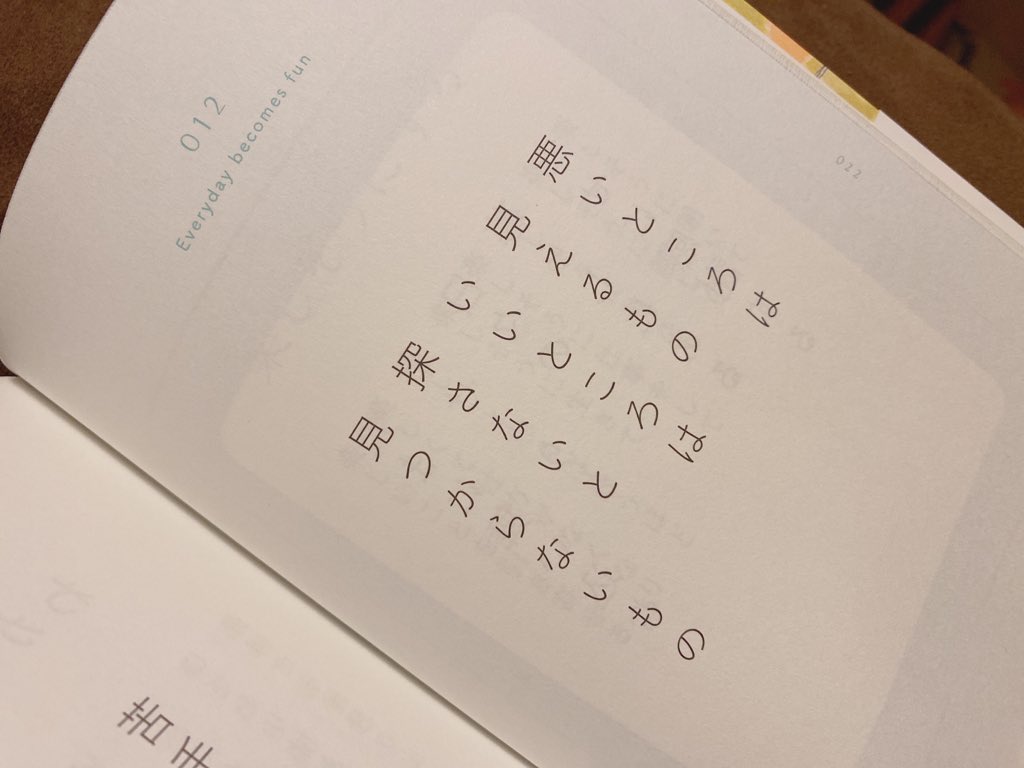 012
Everyday becomes fun
悪いところは
見えるもの
いいところは
探さないと
見つからないもの
022
苦手